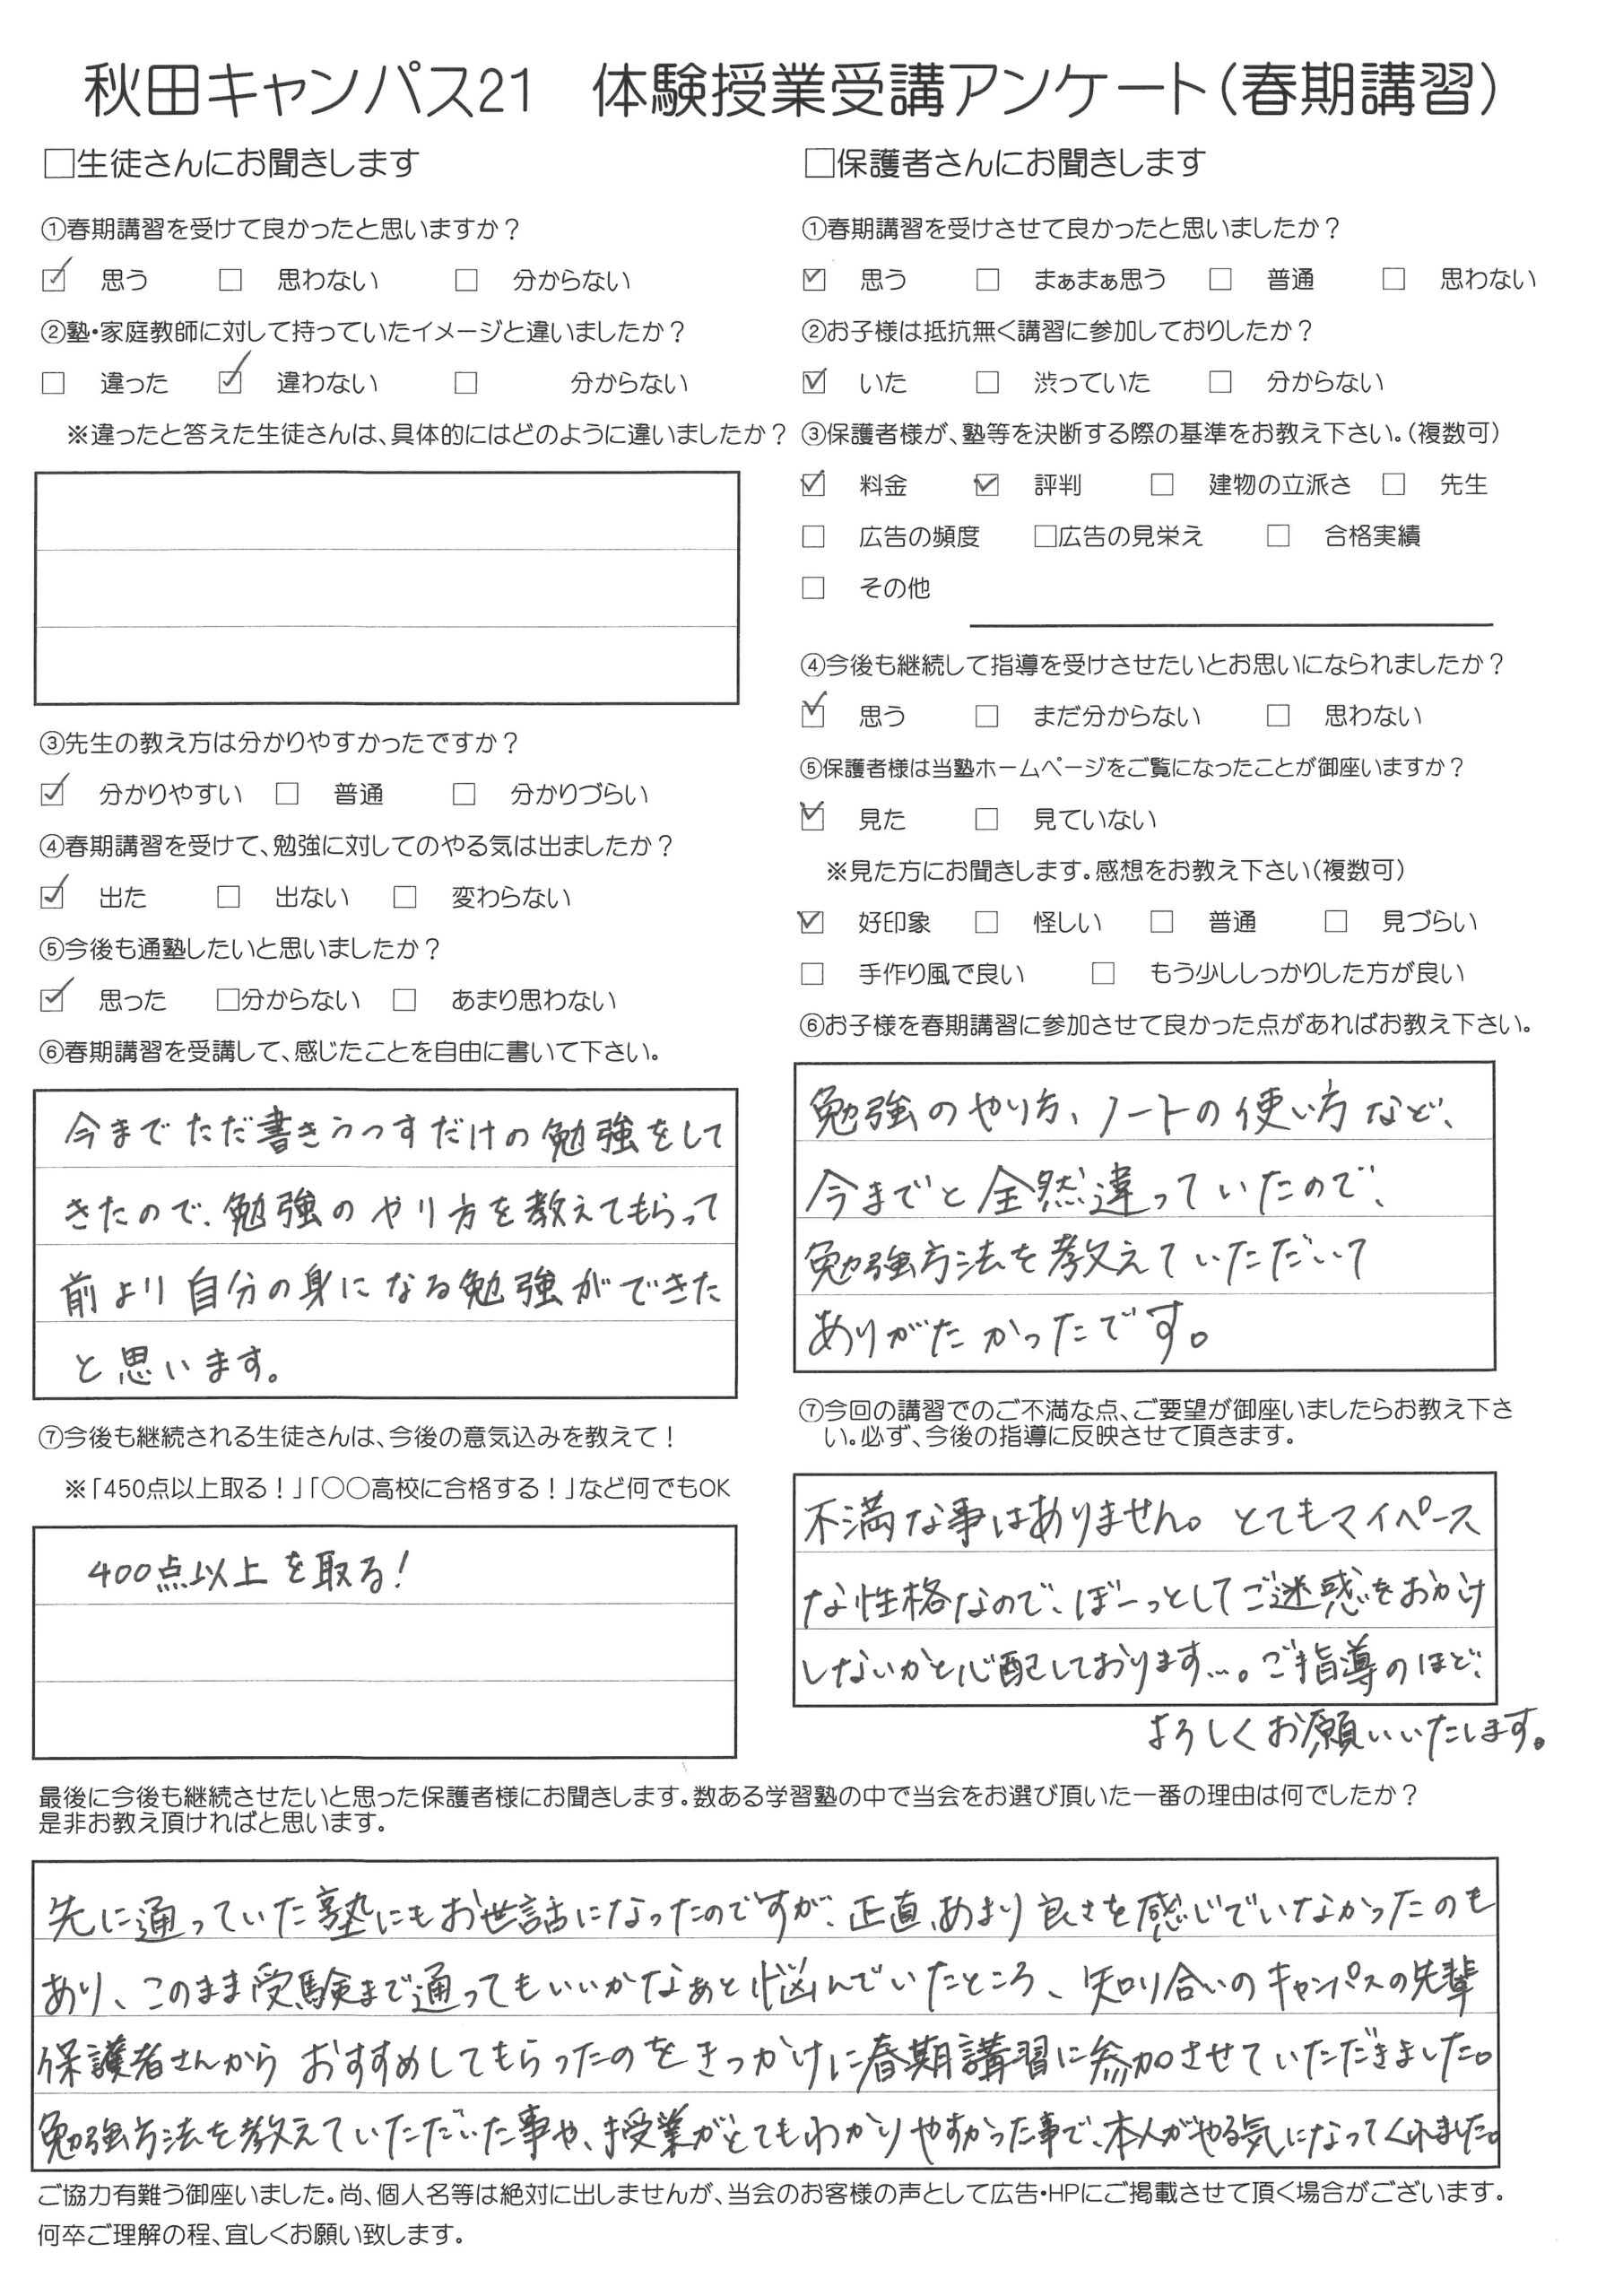 秋田キャンパス21　体験授業受講アンケート（春期講習）
□生徒さんにお聞きします
①春期講習を受けて良かったと思いますか？
☑ 思う □ 思わない □ 分からない
②塾・家庭教師に対して持っていたイメージと違いましたか？
□ 違った ☑ 違わない □ 分からない
※違ったと答えた生徒さんは、具体的にはどのように違いましたか？
③先生の教え方は分かりやすかったですか？
☑ 分かりやすい □ 普通 □ 分かりづらい
④春期講習を受けて、勉強に対してのやる気は出ましたか？
☑ 出た □ 出ない □ 変わらない
⑤今後も通塾したいと思いましたか？
☑ 思った □分からない □ あまり思わない
⑥春期講習を受講して、感じたことを自由に書いて下さい。
今までただ書きうつすだけの勉強をして
きたので、勉強のやり方を教えてもらって
前より自分の身になる勉強ができた
と思います。
⑦今後も継続される生徒さんは、今後の意気込みを教えて！
※「450点以上取る！」「〇〇高校に合格する！」など何でもOK
400点以上を取る！
□保護者さんにお聞きします
①春期講習を受けさせて良かったと思いましたか？
☑ 思う □ まぁまぁ思う □ 普通 □ 思わない
②お子様は抵抗無く講習に参加しておりしたか？
☑ いた □ 渋っていた □ 分からない
③保護者様が、塾等を決断する際の基準をお教え下さい。（複数可）
☑ 料金 ☑ 評判 □ 建物の立派さ □ 先生
□ 広告の頻度 □広告の見栄え □ 合格実績
□ その他
④今後も継続して指導を受けさせたいとお思いになられましたか？
☑ 思う □ まだ分からない □ 思わない
⑤保護者様は当塾ホームページをご覧になったことが御座いますか？
☑ 見た □ 見ていない
※見た方にお聞きします。感想をお教え下さい（複数可）
☑ 好印象 □ 怪しい □ 普通 □ 見づらい
□ 手作り風で良い □ もう少ししっかりした方が良い
⑥お子様を春期講習に参加させて良かった点があればお教え下さい。
勉強のやり方、ノートの使い方など、
今までと全然違っていたので、
勉強方法を教えていただいて
ありがたかったです。
⑦今回の講習でのご不満な点、ご要望が御座いましたらお教え下さ
い。必ず、今後の指導に反映させて頂きます。
不満な事はありません。とてもマイペース
な性格なので、ぼーっとしてご迷惑をおかけ
しないかと心配しております…。ご指導のほど、
よろしくお願いいたします。
最後に今後も継続させたいと思った保護者様にお聞きします。数ある学習塾の中で当会をお選び頂いた一番の理由は何でしたか？
是非お教え頂ければと思います。
先に通っていた塾にもお世話になったのですが、正直、あまり良さを感じでいなかったのも
あり、このまま受験まで通ってもいいかなぁと悩んでいたところ、知り合いのキャンパスの先輩
保護者さんからおすすめしてもらったのをきっかけに春期講習に参加させていただきました。
勉強方法を教えていただいた事や、授業がとてもわかりやすかった事で、本人がやる気になってくれました。
ご協力有難う御座いました。尚、個人名等は絶対に出しませんが、当会のお客様の声として広告・HPにご掲載させて頂く場合がございます。
何卒ご理解の程、宜しくお願い致します。